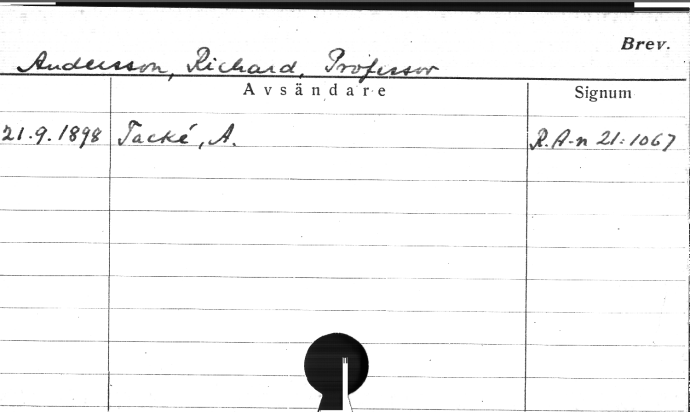 Brev.
Andersson, Richard, Professor
Avsändare Signum
21.9.1898 Tacké, A. R.A-n 21:1067